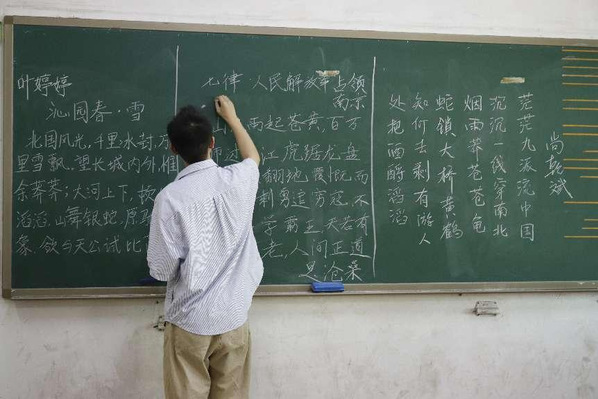 叶婷婷
沁园春·雪
北国风光,千里冰封,万
里雪飘,望长城内外,
余莽莽;大河上下,
滔滔,山舞银蛇,原
象,欲与天公试比
七律 人民解放军占领
南京
雨起苍黄,百万
江,虎踞龙盘
翻地覆慨而
剩勇追穷寇,不
学霸王,天若有
老,人间正道
是沧桑
尚
茫茫九派流中国
沉沉一线穿南北
烟雨莽苍苍龟
蛇锁大桥黄鹤
知何去剩有游人
处把酒酹滔滔